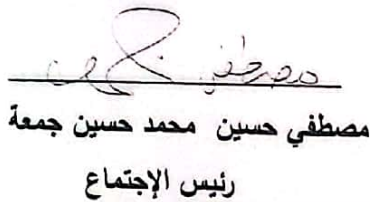 مصطفي
مصطفي حسين محمد حسين جمعة
رئيس الإجتماع